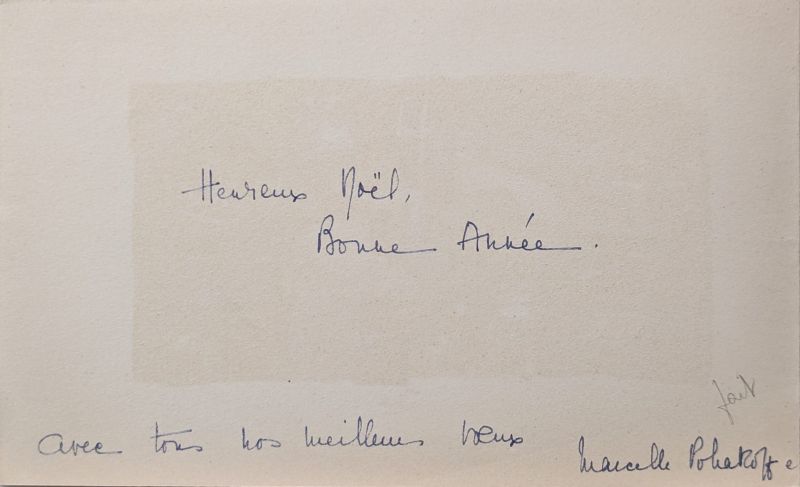 Heureux Noël,
Bonne Année.
fait
avec tous nos meilleurs vœux
Marcelle